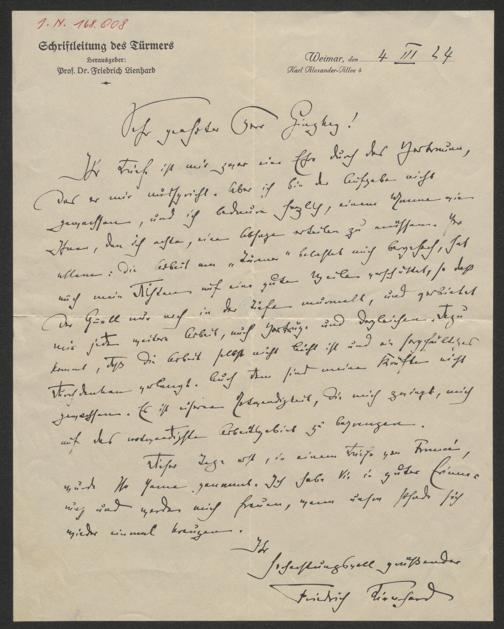 I. N. 168.008
Schriftleitung des Türmers
Herausgeber:
Prof. Dr. Friedrich Lienhard
Weimar, den 4 III 24
Karl Alexander-Allee 4
Sehr geehrter Herr Ginzkey!
Ihr Brief ist mir zwar eine Ehre durch das Vertrauen,
das er mir ausspricht. Aber ich bin der Aufgabe nicht
gewachsen, und ich bedaure herzlich, einem Manne wie
Ihnen, den ich achte, eine Absage erteilen zu müssen. Vor
allem: die Arbeit am "Türmer" belastet mich dergestalt, hat
auch mein Dichten auf eine gute Weile verschüttet, so daß
der Quell nur noch in der Tiefe murmelt, und verbietet
mir jede weitere Arbeit, auch Vorträge und dergleichen. Dazu
kommt, daß die Arbeit selbst nicht leicht ist und ein sorgfältiges
Durchdenken verlangt. Auch dem sind meine Kräfte nicht
gewachsen. Es ist Notwendigkeit, die mich zwingt, mich
auf das notwendigste Arbeitsgebiet zu begrenzen.
Dieser Tage erst, in einem Briefe von
wurde Ihr Name genannt. Ich habe Sie in guter Erinne-
rung und werde mich freuen, wenn unsre Pfade sich
wieder einmal kreuzen.
Ihr
hochachtungsvoll grüßender
Friedrich Lienhard